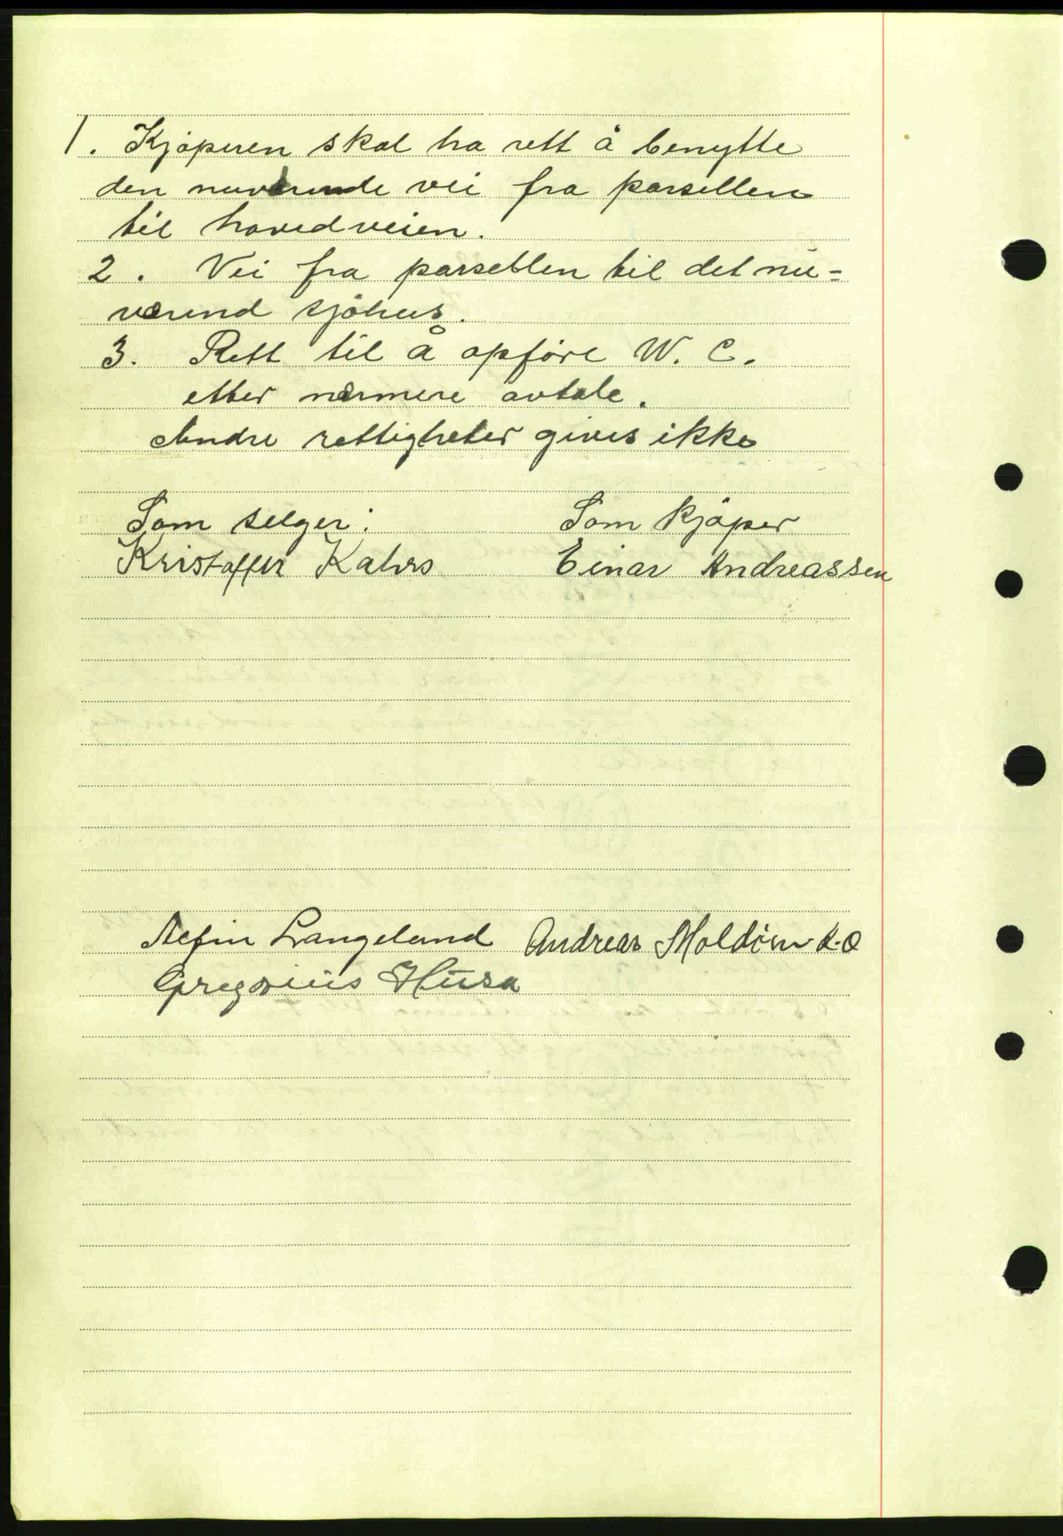 1. Kjøperen skal ha rett å benytte
den nuværende vei fra parsellen
til hovedveien.
2. Vei fra parsellen til det nu=
værend sjøhus.
3. Rett til å opføre W. C.
etter nærmere avtale.
Andre rettigheter gives ikke
Som selger: Som kjøper
Kristoffer Kahrs Einar Andreassen
Langeland Andreas
Gregorius Husa